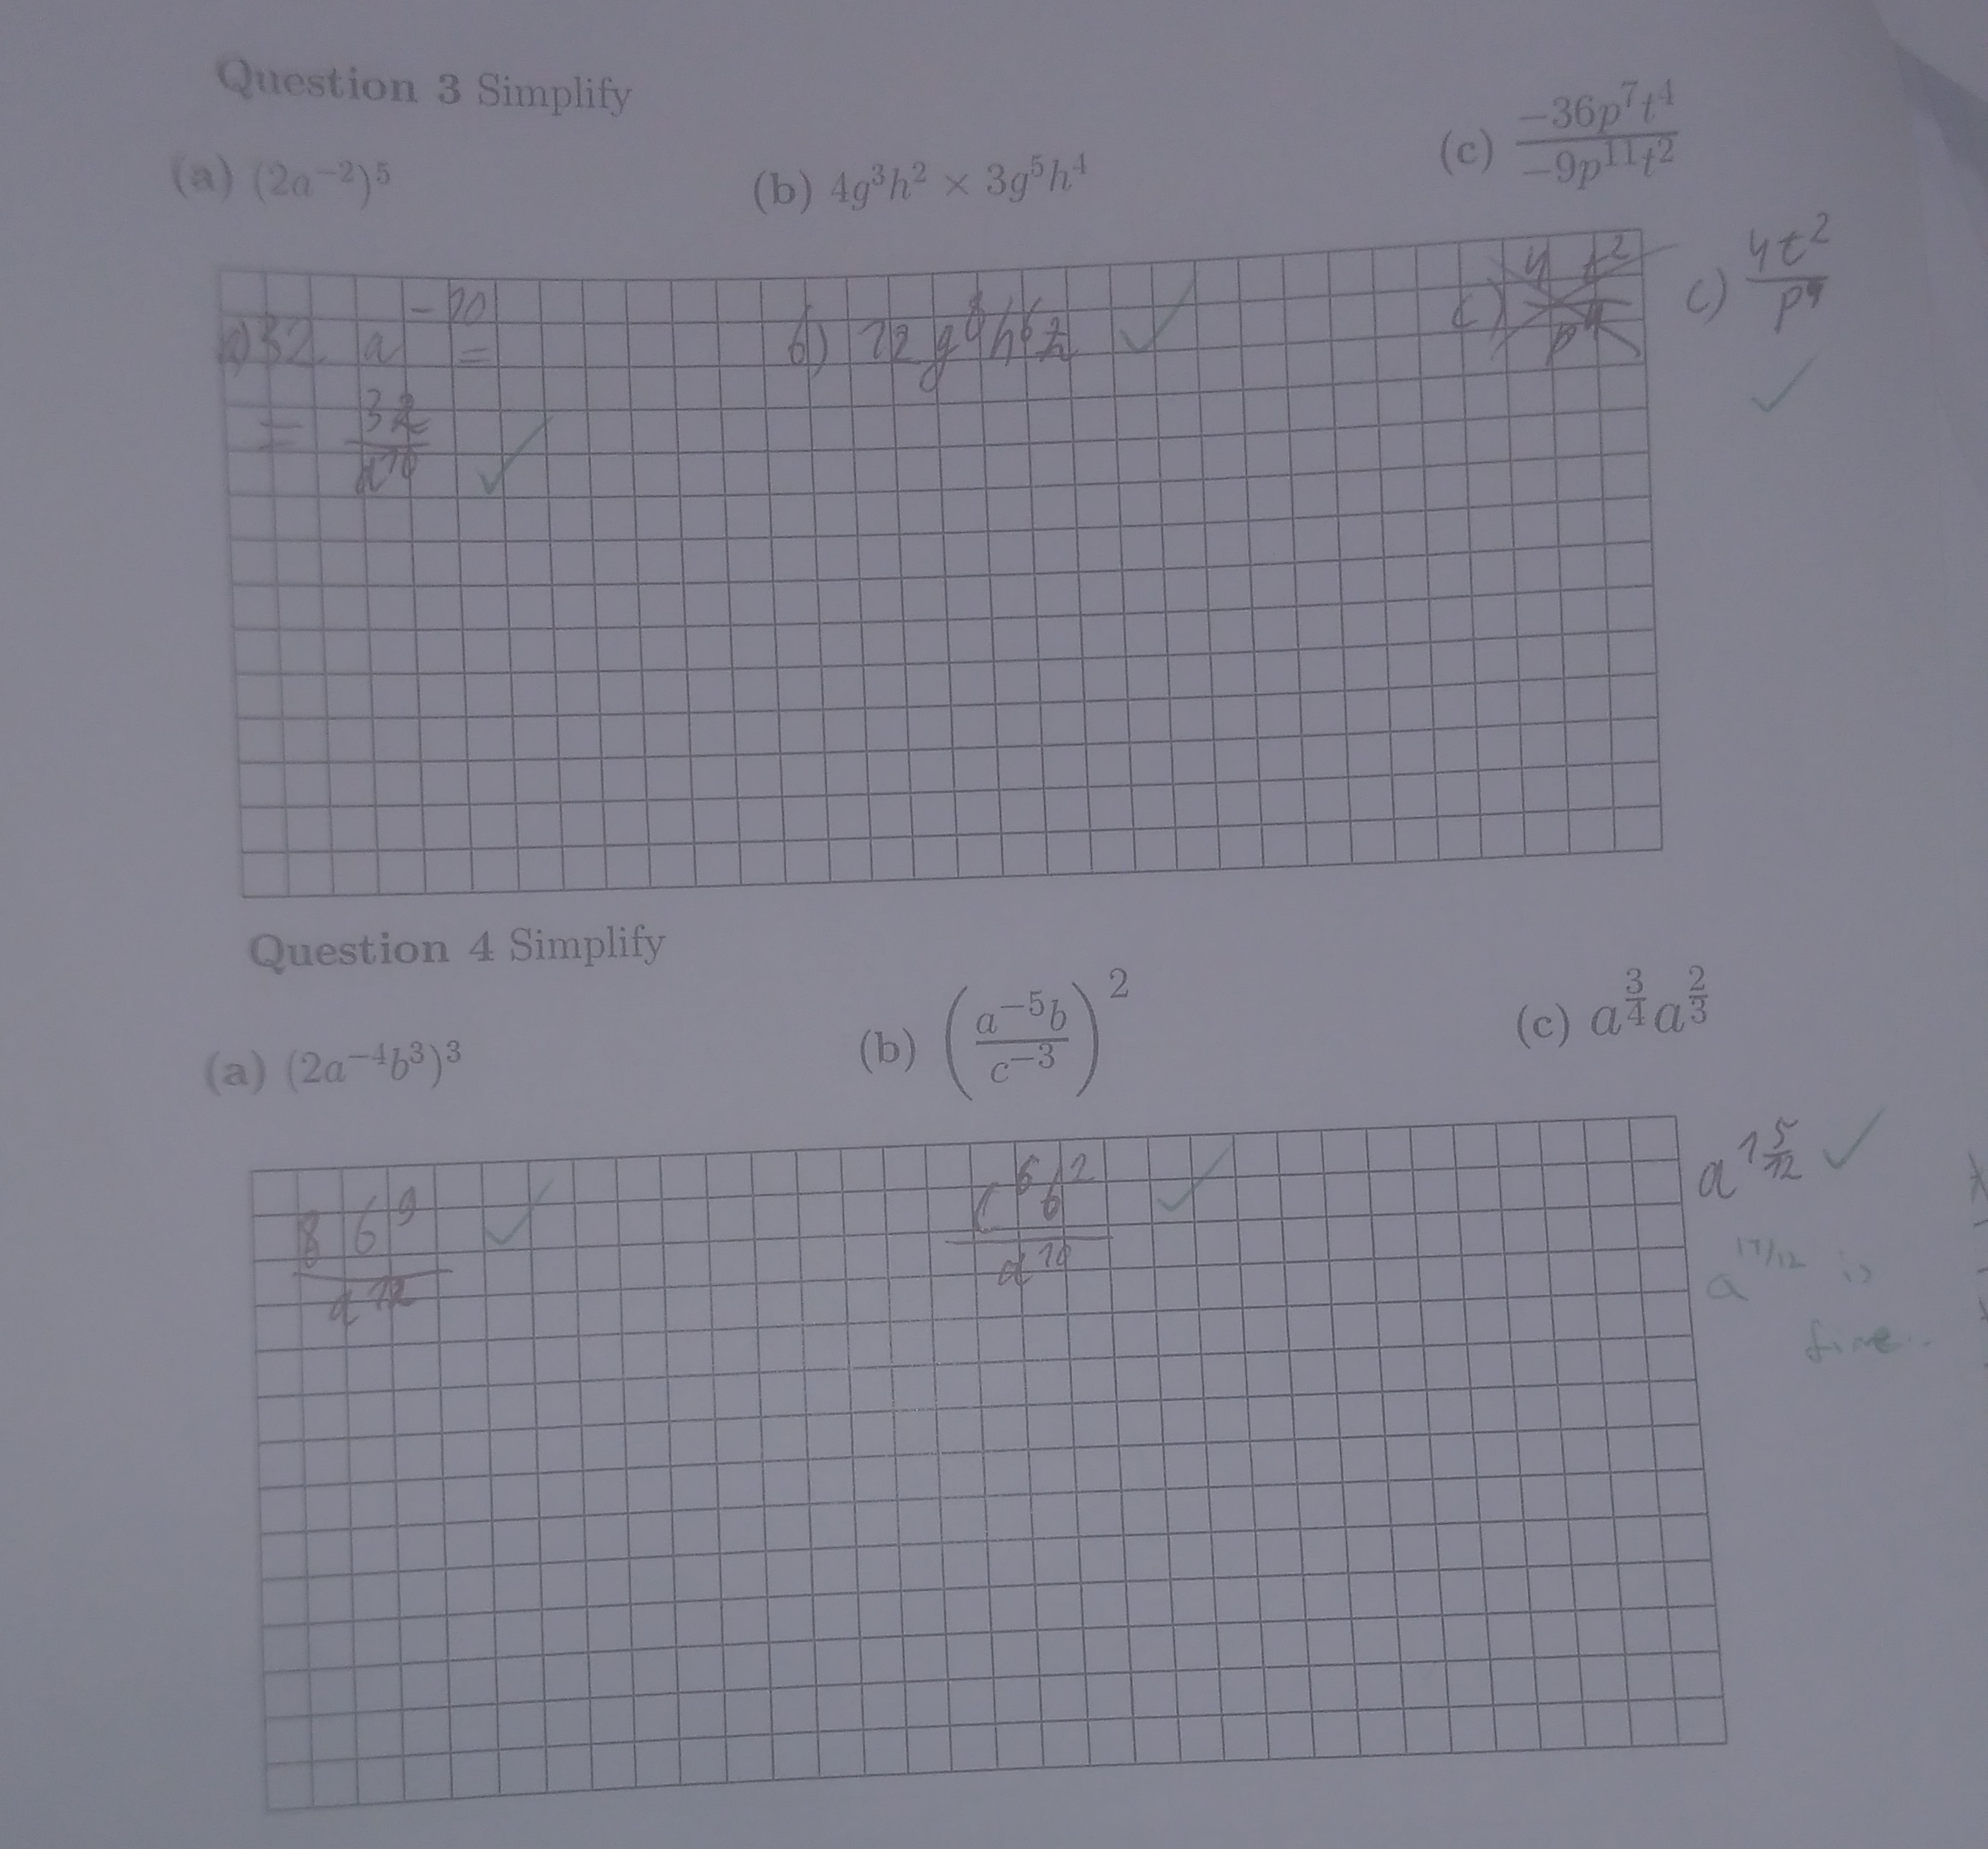 Question 3 Simplify
(a) (2a⁻²)⁵
(b) 4g³h² × 3g⁵h⁴
(c) −36p⁷t⁴
−9p¹¹t²
a) 32 a⁻¹⁰ =
= 32
a¹⁰
b) 12 g⁸h⁶
c) 4 t²
p⁴
c) 4t²
p⁴
Question 4 Simplify
(a) (2a⁻⁴b³)³
(b) (a⁻⁵b / c⁻³)²
(c) a^{3/4}a^{2/3}
8 b⁹
a¹²
c⁶b²
a¹⁰
a^{1 5/12}
a^{17/12} is
fine.